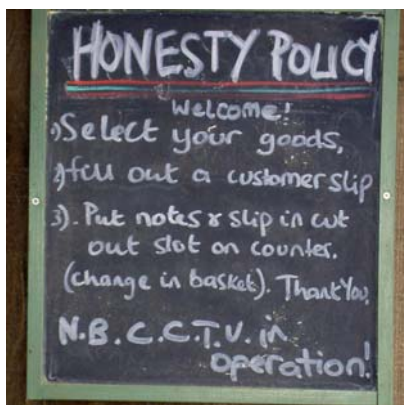 HONESTY POLICY
Welcome!
1) Select your goods,
2) fill out a customer slip
3). Put notes & slip in cut
out slot on counter.
(change in basket). Thank You.
N.B. C.C.T.V. in
operation!